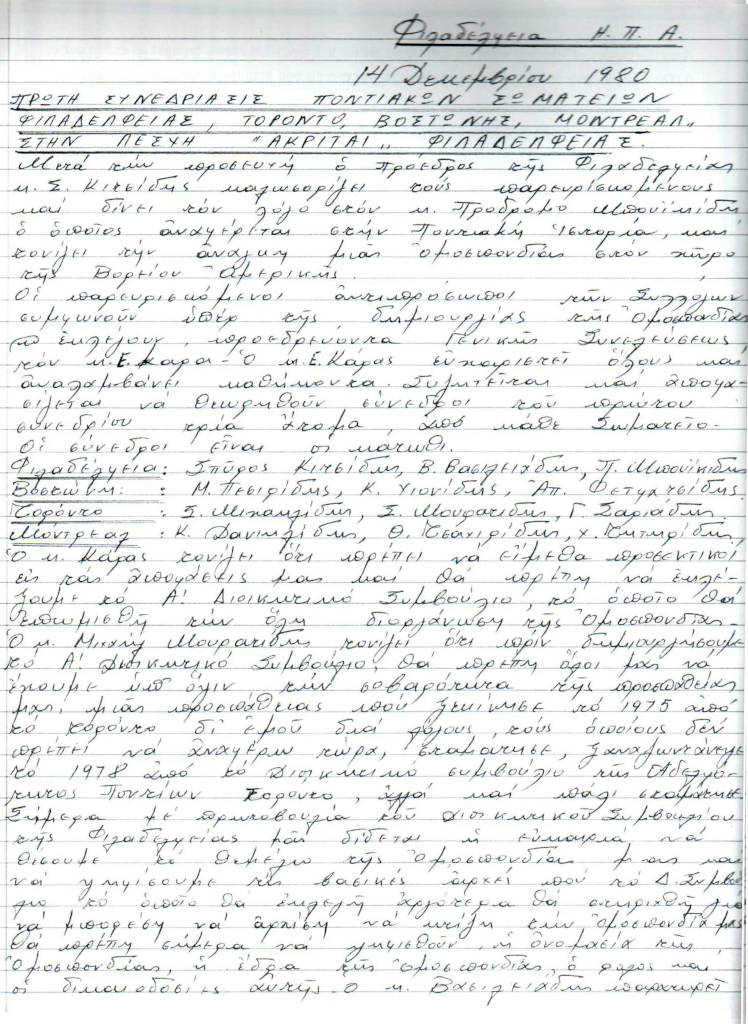 Φιλαδέλφεια Η.Π.Α.
14 Δεκεμβρίου 1980
ΠΡΩΤΗ ΣΥΝΕΔΡΙΑΣΙΣ ΠΟΝΤΙΑΚΩΝ ΣΩΜΑΤΕΙΩΝ
ΦΙΛΑΔΕΛΦΕΙΑΣ, ΤΟΡΟΝΤΟ, ΒΟΣΤΩΝΗΣ, ΜΟΝΤΡΕΑΛ,,
ΣΤΗΝ ΛΕΣΧΗ "ΑΚΡΙΤΑΙ,, ΦΙΛΑΔΕΛΦΕΙΑΣ.
Μετά την προσευχή ὁ Πρόεδρος της Φιλαδελφείας
κ. Σ. Κιτσίδης καλωσορίζει τούς παρευρισκομένους
καί δίνει τόν λόγο στόν κ. Πρόδρομο Μπουϊκίδη
ὁ ὁποῖος ἀναφέρεται στήν Ποντιακή Ἱστορία, και
τονίζει τήν ἀνάγκη μιᾶς Ὁμοσπονδίας στόν χῶρο
τῆς Βορείου Ἀμερικῆς.
Οἱ παρευρισκόμενοι ἀντιπρόσωποι τῶν Συλλόγων
συμφωνοῦν ὑπέρ τῆς δημιουργίας τῆς Ὁμοσπονδίας
ἐκλέγουν, προεδρεύοντα Γενικῆς Συνελεύσεως
τόν κ. Ε. Καρα - Ὁ κ. Ε. Κάρας εὐχαριστεῖ ὅλους και
ἀναλαμβάνει καθήκοντα. Συζητεῖται καί ἀποφα-
σίζεται νά θεωρηθοῦν σύνεδροι τοῦ πρώτου
συνεδρίου τρία ἄτομα, ἀπό κάθε Σωματεῖο-
Οἱ σύνεδροι εἶναι οἱ κατωθι.
Φιλαδέλφεια: Σπῦρος Κιτσίδης, Β. Βασιλειάδης, Π. Μπουϊκίδης
Βοστώνη: : Μ. Πεσιρίδης, Κ. Χιονίδης, Ἀπ. Φετφατσίδης.
Τορόντο : Σ. Μιχαηλίδης, Σ. Μουρατίδης, Γ. Σαριάδης.
Μόντρεαλ : Κ. Δανιηλίδης, Θ. Τσαχιρίδης, Χ.
Ὁ κ. Κάρας τονίζει ὅτι πρέπει νά εἴμεθα προσεκτικοί
εἰς τάς ἀποφάσεις μας καί θά πρέπη νά ἐκλέ-
ξουμε τό Α! Διοικητικό Συμβούλιο, τό ὁποῖο θά
ἐπωμισθῆ τήν ὅλη διοργάνωση τῆς Ὁμοσπονδίας-
Ὁ κ. Μιχάλης Μουρατίδης τονίζει ὅτι πρίν δημιουργήσουμε
τό Α! Διοικητικό Συμβούλιο, θά πρέπη ὅλοι μας να
ἔχουμε ὑπ' ὄψιν τήν σοβαρότητα τῆς προσπάθειας
μας, μιᾶς προσπάθειας πού ξεκίνησε τό 1975 ἀπό
τό τορόντο δι' ἐμοῦ διά λόγους, τούς ὁποίους δέν
πρέπει νά ἀναφέρω τώρα, σταμάτησε, ξαναζωντάνεψε
τό 1978 ἀπό τό Διοικητικό συμβούλιο τῆς Ἀδελφό-
τητος Ποντίων Τορόντο, ἀλλά καί πάλι σταμάτησε
Σήμερα μέ πρωτοβουλία τοῦ Διοικητικοῦ Συμβουλίου
τῆς Φιλαδελφείας μᾶς δίδεται ἡ εὐκαιρία νά
θέσουμε τό θεμέλιο τῆς Ὁμοσπονδίας μας και
νά ψηφίσουμε τίς βασικές ἀρχές πού τό Δ. Συμβού
λιο τό ὁποῖο θά ἐκλεγῆ ἀργότερα θά στηριχθῆ γιά
νά μπορέση νά ἀρχίση νά κτίζη τήν Ὁμοσπονδία μας
Θά πρέπη σήμερα νά ψηφισθοῦν, ἡ ὀνομασία τῆς
Ὁμοσπονδίας, ἡ ἕδρα τῆς Ὁμοσπονδίας, ὁ φόρος και
οἱ δικαιοδοσίες αὐτῆς. Ὁ κ. Βασιλειάδης παρατηρεῖ